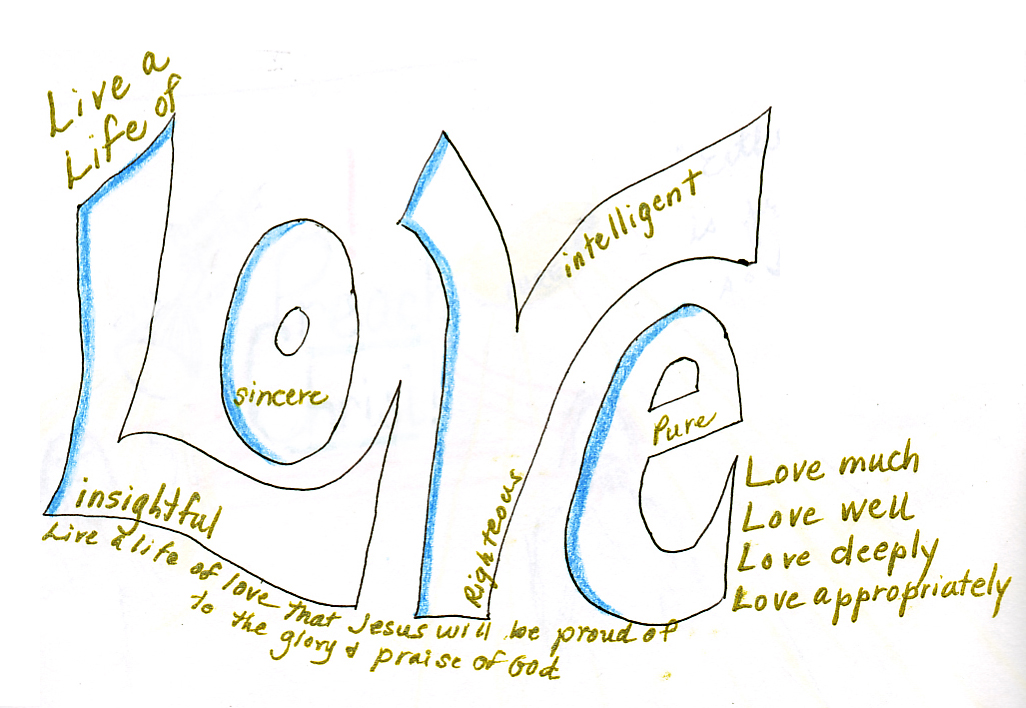 Live a
Life of
Love
intelligent
sincere
Pure
insightful
Righteous
Love much
Love well
Love deeply
Love appropriately
Live a life of love that Jesus will be proud of
to the glory & praise of God